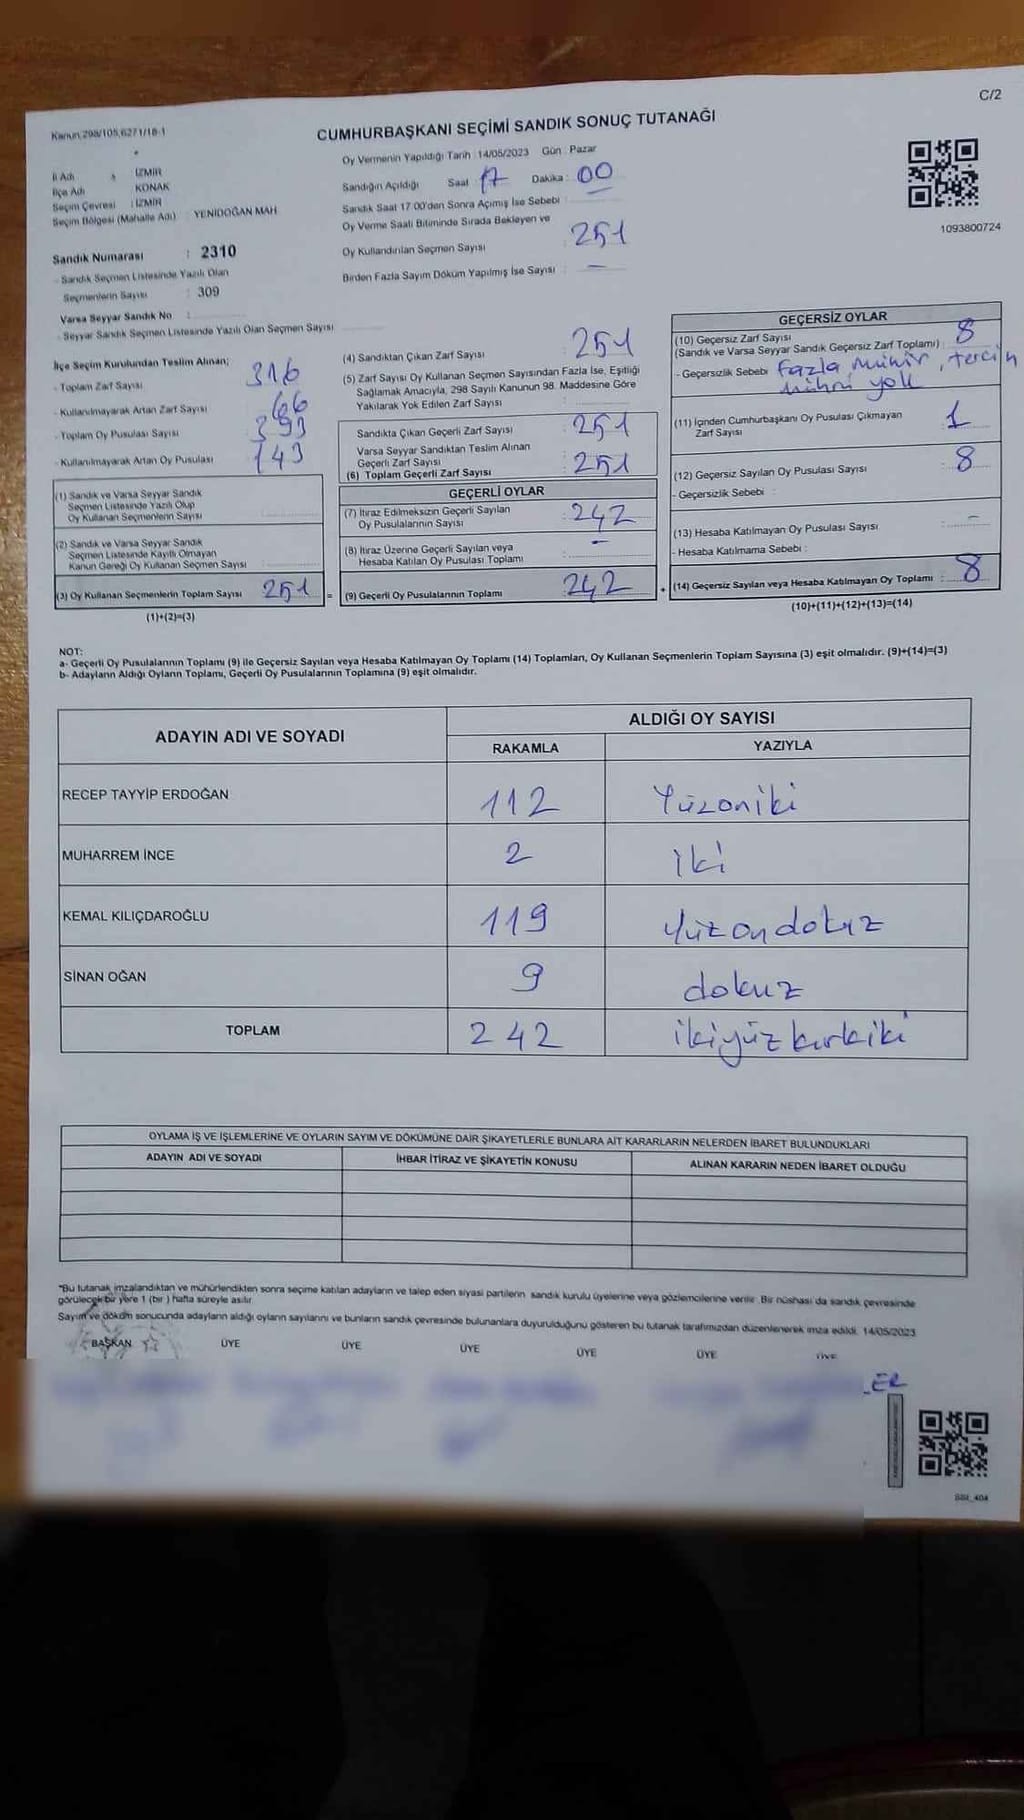 C/2
Kanun 298/105,6271/18-1
CUMHURBAŞKANI SEÇİMİ SANDIK SONUÇ TUTANAĞI
İl Adı : İZMİR
İlçe Adı KONAK
Seçim Çevresi : İZMİR
Seçim Bölgesi (Mahalle Adı) : YENİDOĞAN MAH
Sandık Numarası : 2310
- Sandık Seçmen Listesinde Yazılı Olan
Seçmenlerin Sayısı : 309
Varsa Seyyar Sandık No :
- Seyyar Sandık Seçmen Listesinde Yazılı Olan Seçmen Sayısı
Oy Vermenin Yapıldığı Tarih : 14/05/2023 Gün : Pazar
Sandığın Açıldığı Saat 17 Dakika : 00
Sandık Saat 17:00'den Sonra Açımış İse Sebebi :
Oy Verme Saati Bitiminde Sırada Bekleyen ve
Oy Kullandırılan Seçmen Sayısı : 251
Birden Fazla Sayım Döküm Yapılmış İse Sayısı : —
1093800724
İlçe Seçim Kurulundan Teslim Alınan;
- Toplam Zarf Sayısı 316
- Kullanılmayarak Artan Zarf Sayısı 66
- Toplam Oy Pusulası Sayısı 393
- Kullanılmayarak Artan Oy Pusulası 143
(1) Sandık ve Varsa Seyyar Sandık
Seçmen Listesinde Yazılı Olup
Oy Kullanan Seçmenlerin Sayısı
(2) Sandık ve Varsa Seyyar Sandık
Seçmen Listesinde Kayıtlı Olmayan
Kanun Gereği Oy Kullanan Seçmen Sayısı
(3) Oy Kullanan Seçmenlerin Toplam Sayısı 251 =
(1)+(2)=(3)
(4) Sandıktan Çıkan Zarf Sayısı 251
(5) Zarf Sayısı Oy Kullanan Seçmen Sayısından Fazla İse, Eşitliği
Sağlamak Amacıyla, 298 Sayılı Kanunun 98. Maddesine Göre
Yakılarak Yok Edilen Zarf Sayısı :
Sandıkta Çıkan Geçerli Zarf Sayısı : 251
Varsa Seyyar Sandıktan Teslim Alınan
Geçerli Zarf Sayısı
(6) Toplam Geçerli Zarf Sayısı : 251
GEÇERLİ OYLAR
(7) İtiraz Edilmeksizin Geçerli Sayılan
Oy Pusulalarının Sayısı : 242
(8) İtiraz Üzerine Geçerli Sayılan veya
Hesaba Katılan Oy Pusulası Toplamı : —
(9) Geçerli Oy Pusulalarının Toplamı : 242 +
GEÇERSİZ OYLAR
(10) Geçersiz Zarf Sayısı
(Sandık ve Varsa Seyyar Sandık Geçersiz Zarf Toplamı) : 8
- Geçersizlik Sebebi fazla mühür, tercih
mührü yok
(11) İçinden Cumhurbaşkanı Oy Pusulası Çıkmayan
Zarf Sayısı 1
(12) Geçersiz Sayılan Oy Pusulası Sayısı : 8
- Geçersizlik Sebebi :
(13) Hesaba Katılmayan Oy Pusulası Sayısı : -
- Hesaba Katılmama Sebebi :
(14) Geçersiz Sayılan veya Hesaba Katılmayan Oy Toplamı : 8
(10)+(11)+(12)+(13)=(14)
NOT:
a- Geçerli Oy Pusulalarının Toplamı (9) ile Geçersiz Sayılan veya Hesaba Katılmayan Oy Toplamı (14) Toplamları, Oy Kullanan Seçmenlerin Toplam Sayısına (3) eşit olmalıdır. (9)+(14)=(3)
b- Adayların Aldığı Oyların Toplamı, Geçerli Oy Pusulalarının Toplamına (9) eşit olmalıdır.
ADAYIN ADI VE SOYADI ALDIĞI OY SAYISI
RAKAMLA YAZIYLA
RECEP TAYYİP ERDOĞAN 112 Yüzoniki
MUHARREM İNCE 2 iki
KEMAL KILIÇDAROĞLU 119 Yüzondokuz
SİNAN OĞAN 9 dokuz
TOPLAM 242 ikiyüzkırkiki
OYLAMA İŞ VE İŞLEMLERİNE VE OYLARIN SAYIM VE DÖKÜMÜNE DAİR ŞİKAYETLERLE BUNLARA AİT KARARLARIN NELERDEN İBARET BULUNDUKLARI
ADAYIN ADI VE SOYADI İHBAR İTİRAZ VE ŞİKAYETİN KONUSU ALINAN KARARIN NEDEN İBARET OLDUĞU
"Bu tutanak imzalandıktan ve mühürlendikten sonra seçime katılan adayların ve talep eden siyasi partilerin sandık kurulu üyelerine veya gözlemcilerine verilir. Bir nüshası da sandık çevresinde
görülecek bir yere 1 (bir ) hafta süreyle asılır.
Sayım ve döküm sonucunda adayların aldığı oyların sayılarını ve bunların sandık çevresinde bulunanlara duyurulduğunu gösteren bu tutanak tarafımızdan düzenlenerek imza edildi. 14/05/2023
BAŞKAN ÜYE ÜYE ÜYE ÜYE ÜYE ÜYE
ER